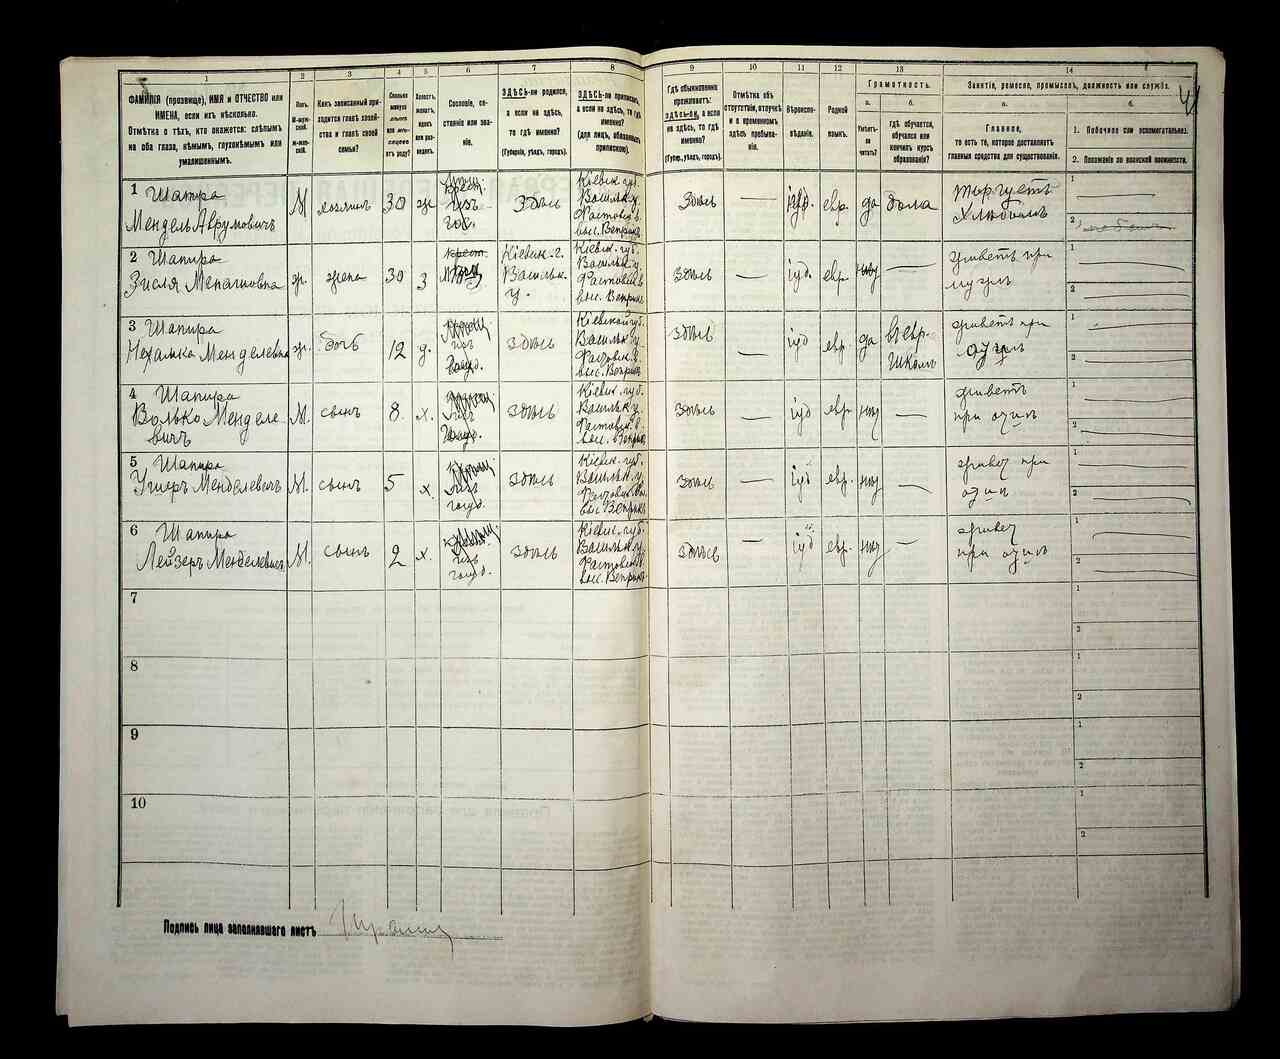 1 2 3 4 5 6 7 8 9 10 11 12 13 14
ФАМИЛІЯ (прозвище), ИМЯ и ОТЧЕСТВО или
ИМЕНА, если ихъ нѣсколько.
Отмѣтка о тѣхъ, кто окажется: слѣпымъ
на оба глаза, нѣмымъ, глухонѣмымъ или
умалишеннымъ.
Полъ.
М-муж-
ской.
Ж-жен-
скій.
Какъ записанный при-
ходится главѣ хозяй-
ства и главѣ своей
семьи?
Сколько
минуло
лѣтъ
или мѣ-
сяцевъ
отъ роду?
Холостъ,
женатъ,
вдовъ
или раз-
веденъ.
Сословіе, со-
стояніе или зва-
ніе.
ЗДѢСЬ-ли родился,
а если не здѣсь,
то гдѣ именно?
(Губернія, уѣздъ, городъ).
ЗДѢСЬ-ли приписанъ,
а если не здѣсь, то гдѣ
именно?
(для лицъ, обязанныхъ
припискою).
Гдѣ обыкновенно
проживаетъ:
здѣсь-ли, а если
не здѣсь, то гдѣ
именно?
(Губер., уѣздъ, городъ).
Отмѣтка объ
отсутствіи, отлучкѣ
и о временномъ
здѣсь пребыва-
ніи.
Вѣроиспо-
вѣданіе.
Родной
языкъ.
Грамотность.
а.
Умѣетъ-
ли
читать?
б.
Гдѣ обучается,
обучался или
кончилъ курсъ
образованія?
Занятіе, ремесло, промыселъ, должность или служба.
а.
Главное,
то есть то, которое доставляетъ
главныя средства для существованія.
б.
1. Побочное или вспомогательное.
2. Положеніе по воинской повинности.
41
1 Шапира
Мендель Аврумовичъ М хозяинъ 30 ж Здѣсь Кіевск. губ.
Васильк. у.
Фастовск. в.
выс. Веприкъ Здѣсь — іуд. евр. да дома торгуетъ
хлѣбомъ
1
2
2 Шапира
Зисля Менашовна ж. жена 30 з Кіевск. г.
Васильк.
у. Кіевск. губ.
Васильк. у.
Фастовск. в.
выс. Веприкъ здѣсь — іуд. евр. — живетъ при
мужѣ
1
2
3 Шапира
Нехамка Менделевна ж. дочь 12 д. здѣсь Кіевской губ.
Васильк. у.
Фастовск. в.
выс. Веприкъ здѣсь — іуд евр. да въ евр.
школѣ живетъ при
отцѣ
1
2
4 Шапира
Волько Менделе-
вичъ М. сынъ 8 х. здѣсь Кіевск. губ.
Васильк. у.
Фастовск. в.
выс. Веприкъ здѣсь — іуд евр. нѣт — живетъ
при отцѣ
1
2
5 Шапира
Ушеръ Менделевичъ М. сынъ 5 х. здѣсь Кіевск. губ.
Васильк. у.
Фастовск. в.
выс. Веприкъ здѣсь — іуд евр. нѣт — живет при
отцѣ
1
2
6 Шапира
Лейзеръ Менделевичъ М. сынъ 2 х. здѣсь Кіевск. губ.
Васильк. у.
Фастовск. в.
выс. Веприкъ здѣсь — іуд евр. нѣт — живет
при отцѣ
1
2
7
1
2
8
1
2
9
1
2
10
1
2
Подпись лица заполнявшаго листъ